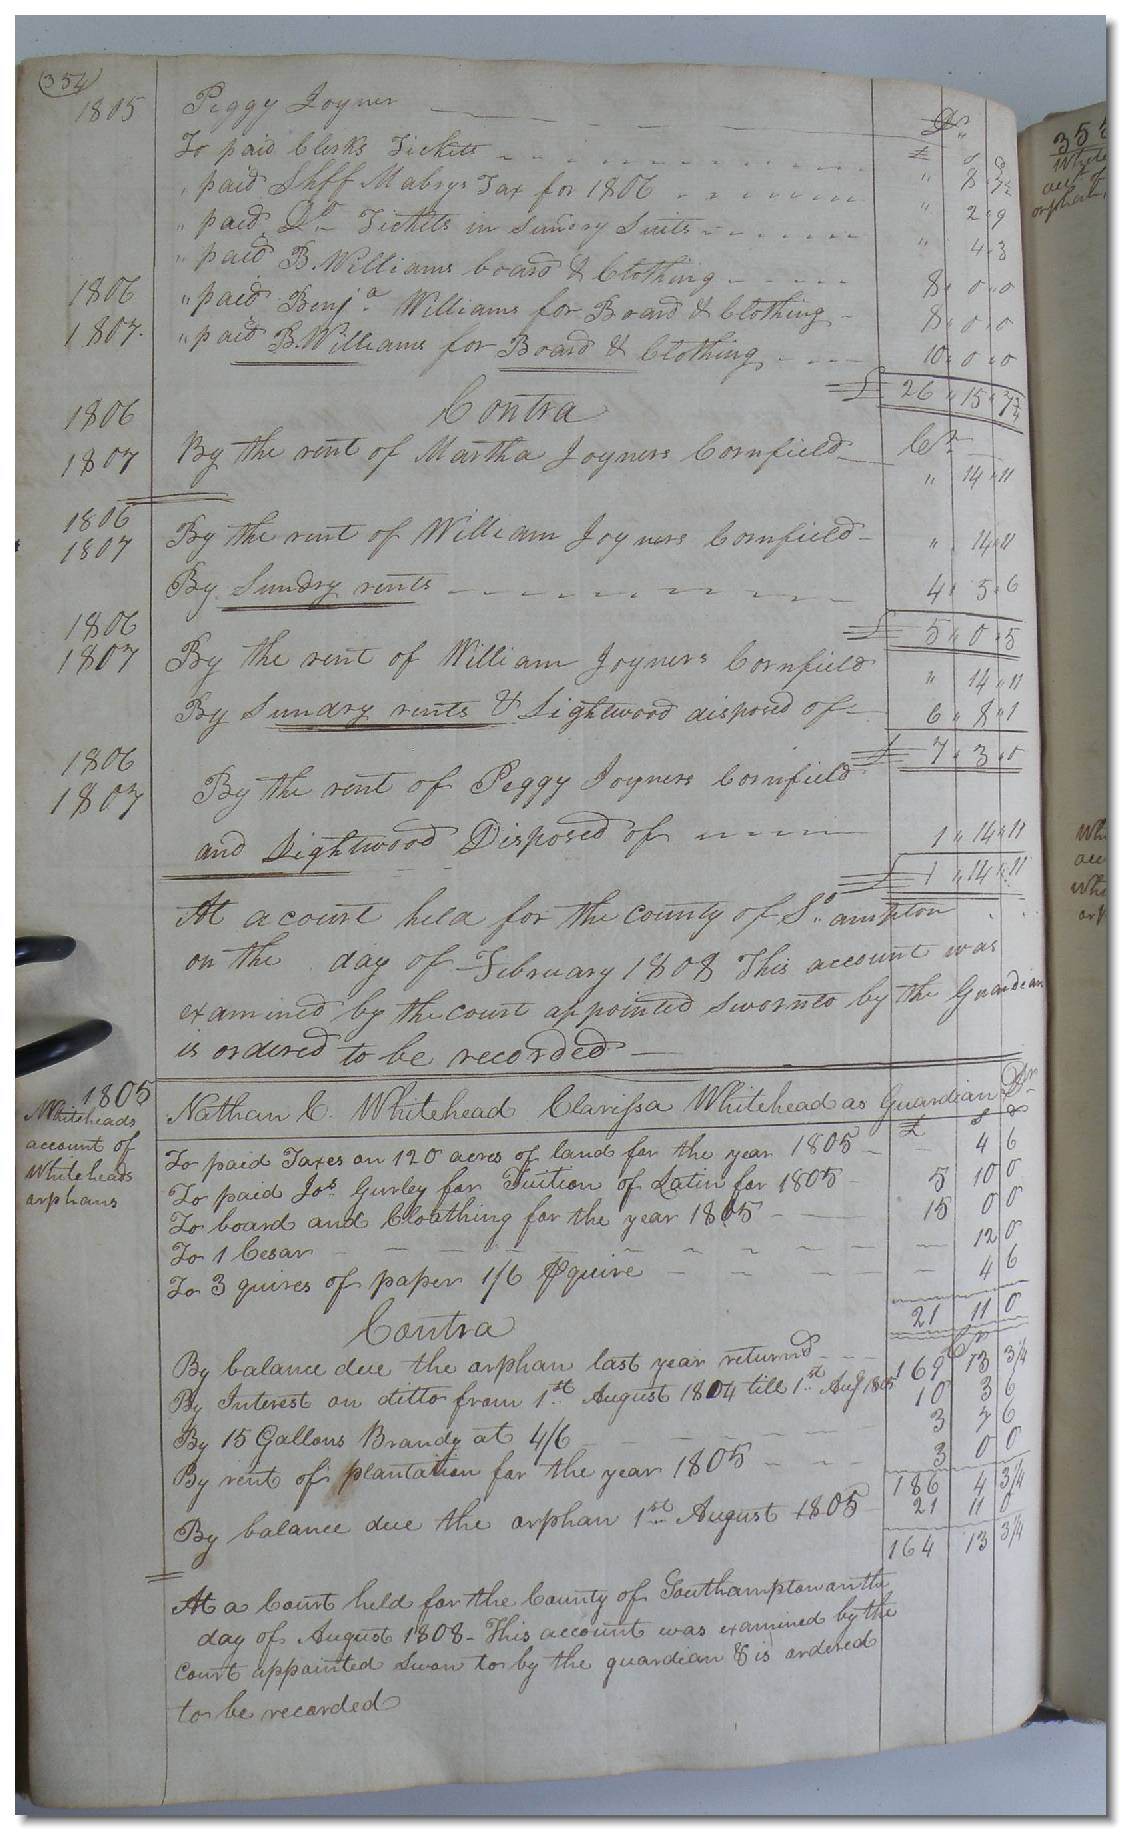 354
1805 Peggy Joyner Dr
To paid Clerks Tickett £ s d
" paid Shff Mabrys Tax for 1806 " 8 "
" paid Do Tickets in Sundry Suits " 2 " 9
" paid B. Williams board & Clothing " 4 " 3
1806 " paid Benja Williams for Board & Clothing 8 " 0 " 0
1807 " paid B. Williams for Board & Clothing 8 " 0 " 0
10 " 0 " 0
£ 26 " 15 " 7¾
Contra Cr
1806
1807 By the rent of Martha Joyners Cornfield " 14 " 11
1806
1807 By the rent of William Joyners Cornfield " 14 " 11
By Sundry rents 4 " 5 " 6
£ 5 " 0 " 5
1806
1807 By the rent of William Joyners Cornfield " 14 " 11
By Sundry rents & Lightwood disposed of 6 " 8 " 1
£ 7 " 3 " 0
1806
1807 By the rent of Peggy Joyners Cornfield
and Lightwood Disposed of 1 " 14 " 11
£ 1 " 14 " 11
At a court held for the county of So.ampton
on the day of February 1808 This account was
examined by the court appointed sworn to by the Guardian
is ordered to be recorded
1805
Whiteheads
account of
Whiteheads
orphans
Nathan C. Whitehead Clarissa Whitehead as Guardian Dr
£ s d
To paid Taxes on 120 acres of land for the year 1805 4 6
To paid Jos. Gurley for Tuition of Latin for 1805 5 10 0
To board and Cloathing for the year 1805 15 0 0
To 1 Cesar 12 0
To 3 quires of paper 1/6 ⅌ quire 4 6
21 11 0
Contra Cr
By balance due the orphan last year returnd 169 13 3¼
By Interest on ditto from 1st August 1804 till 1st Aug 1805 10 3 6
By 15 Gallons Brandy at 4/6 3 7 6
By rent of plantation for the year 1805 3 0 0
186 4 3¼
21 11 0
By balance due the orphan 1st August 1805 164 13 3¼
At a Court held for the County of Southampton on the
day of August 1808 - This account was examined by the
court appointed Swon to by the guardian & is ordered
to be recorded
355